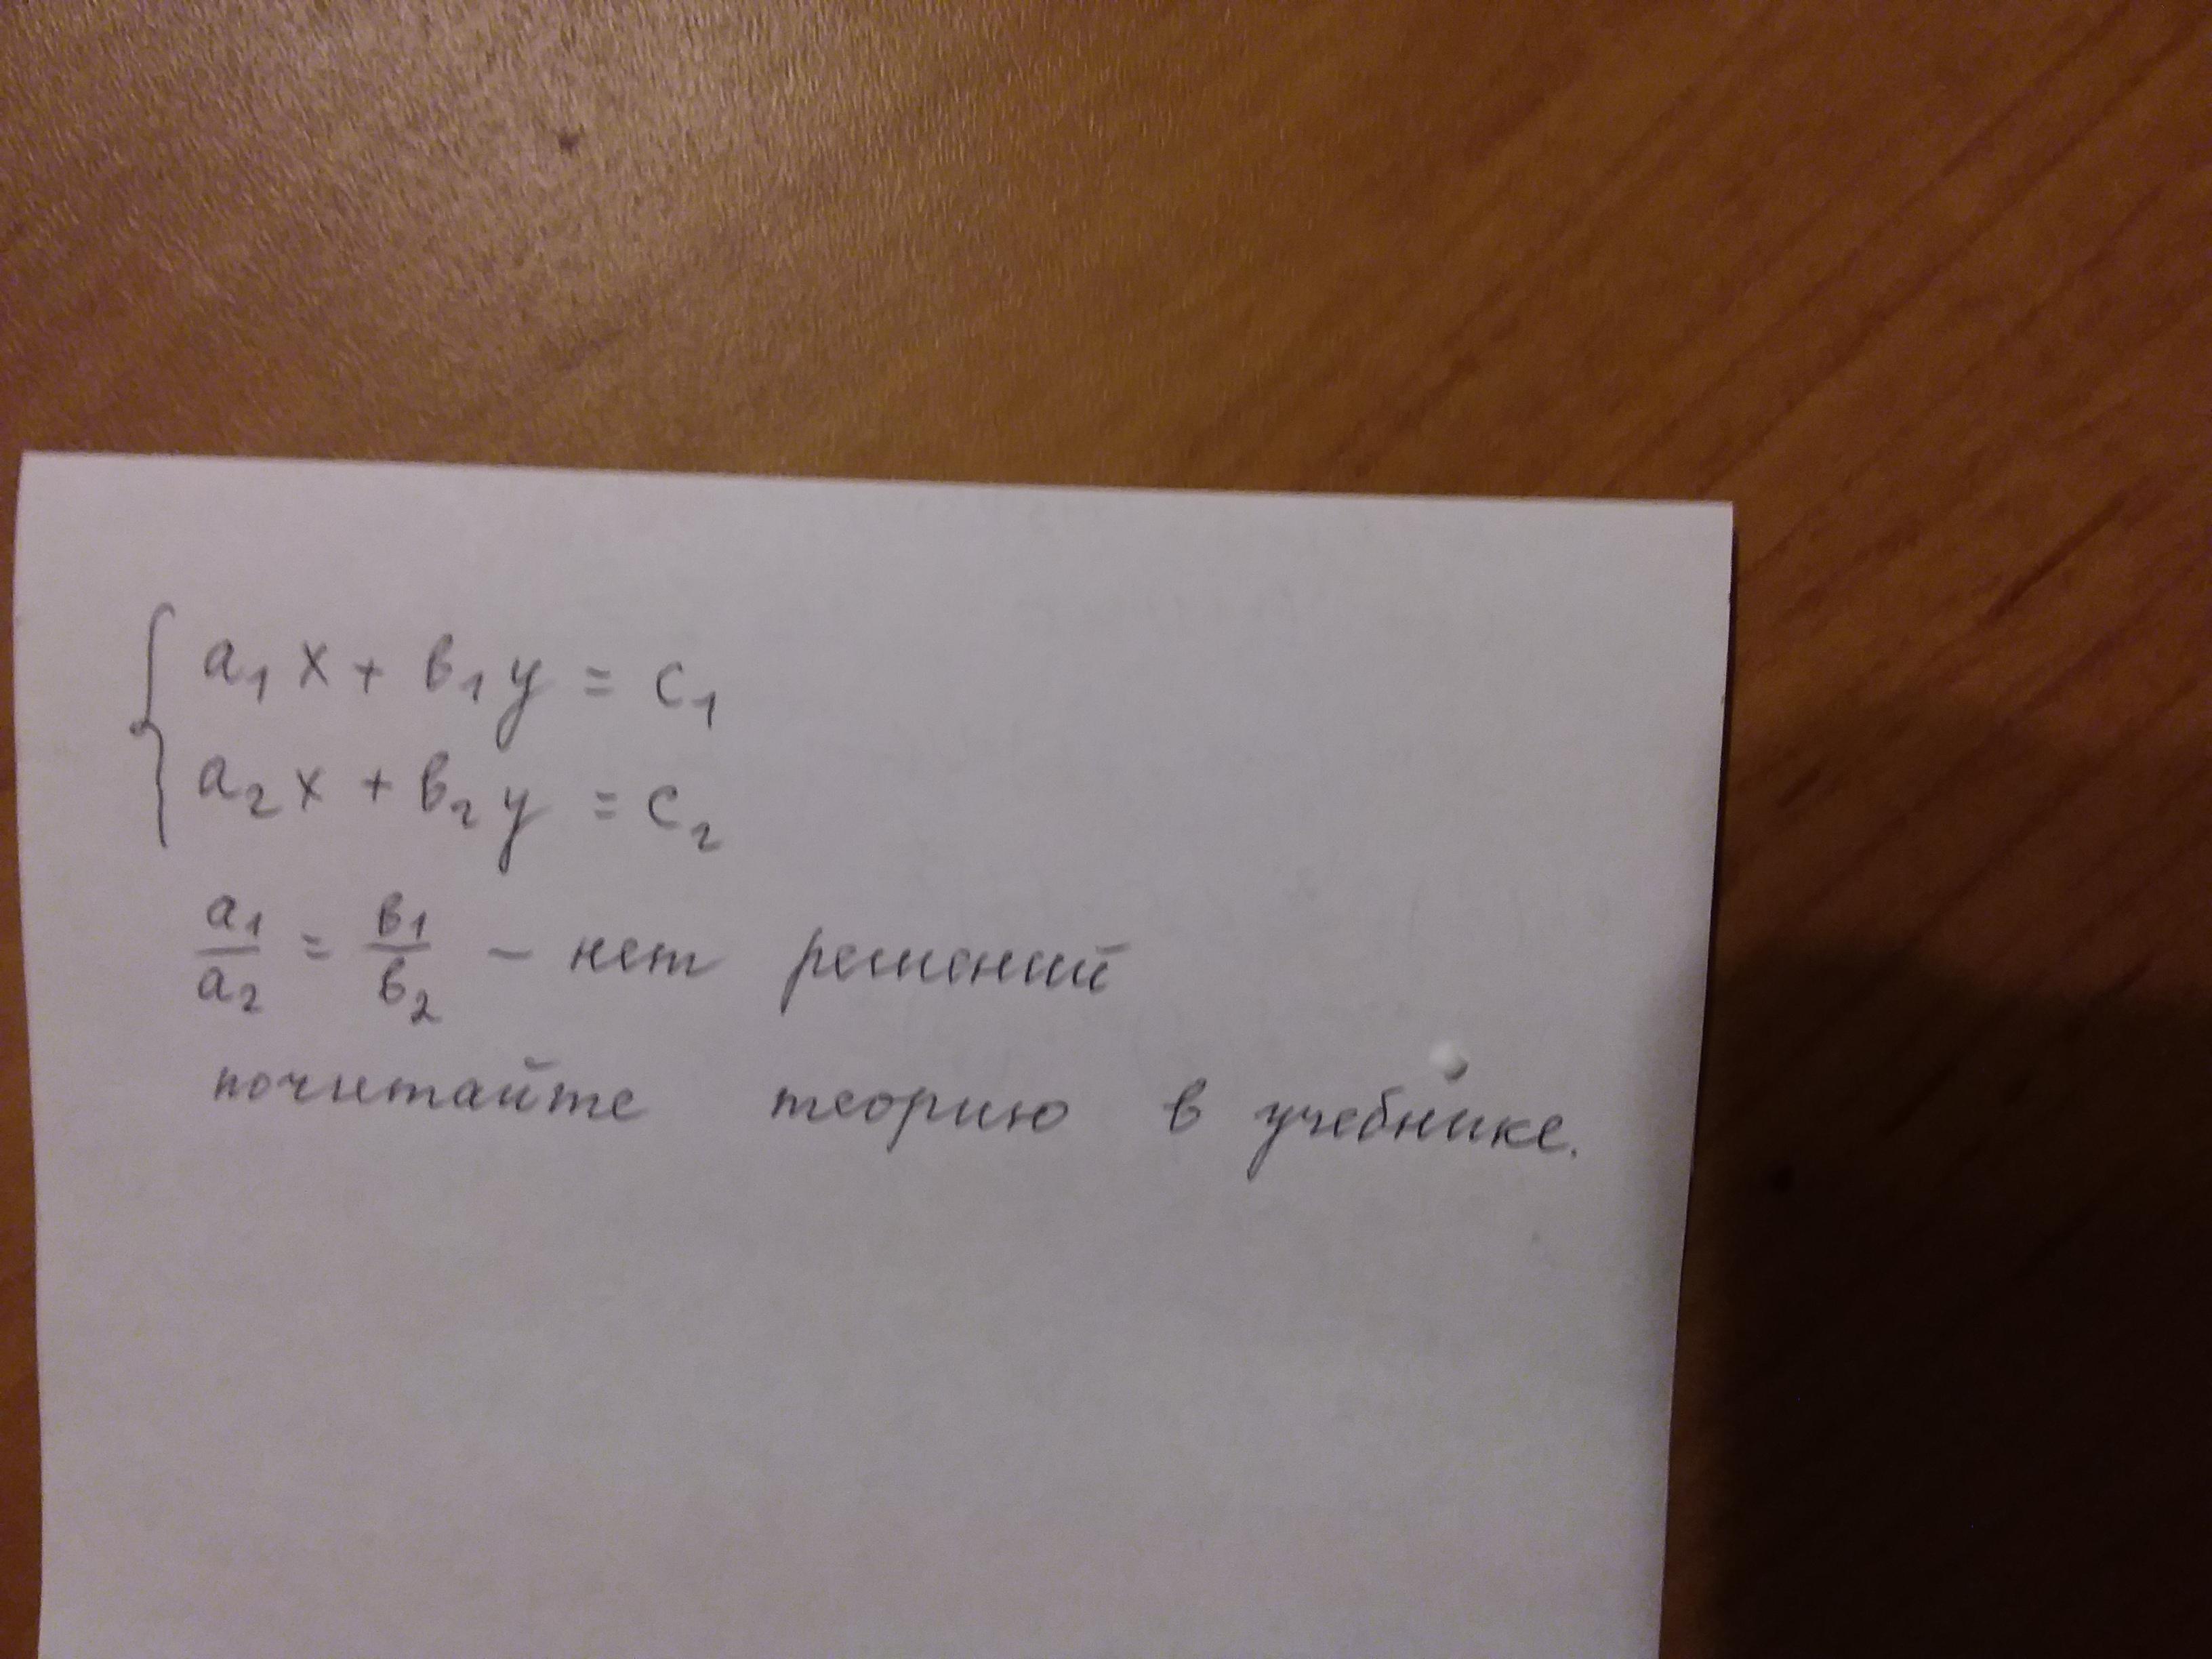 { a₁x + в₁y = c₁
a₂x + в₂y = c₂
a₁/a₂ = в₁/в₂ – нет решений
почитайте теорию в учебнике.